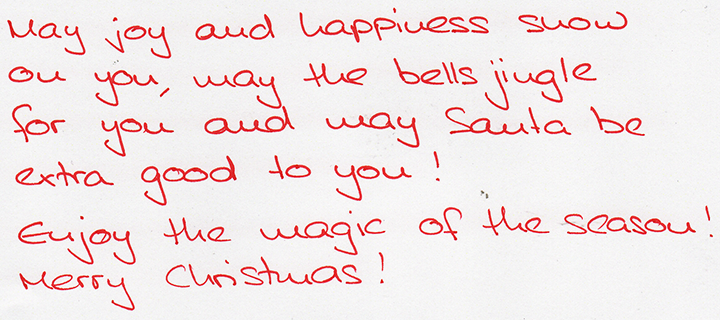 May joy and happiness snow
on you, may the bells jingle
for you and may Santa be
extra good to you!
Enjoy the magic of the season!
Merry Christmas!